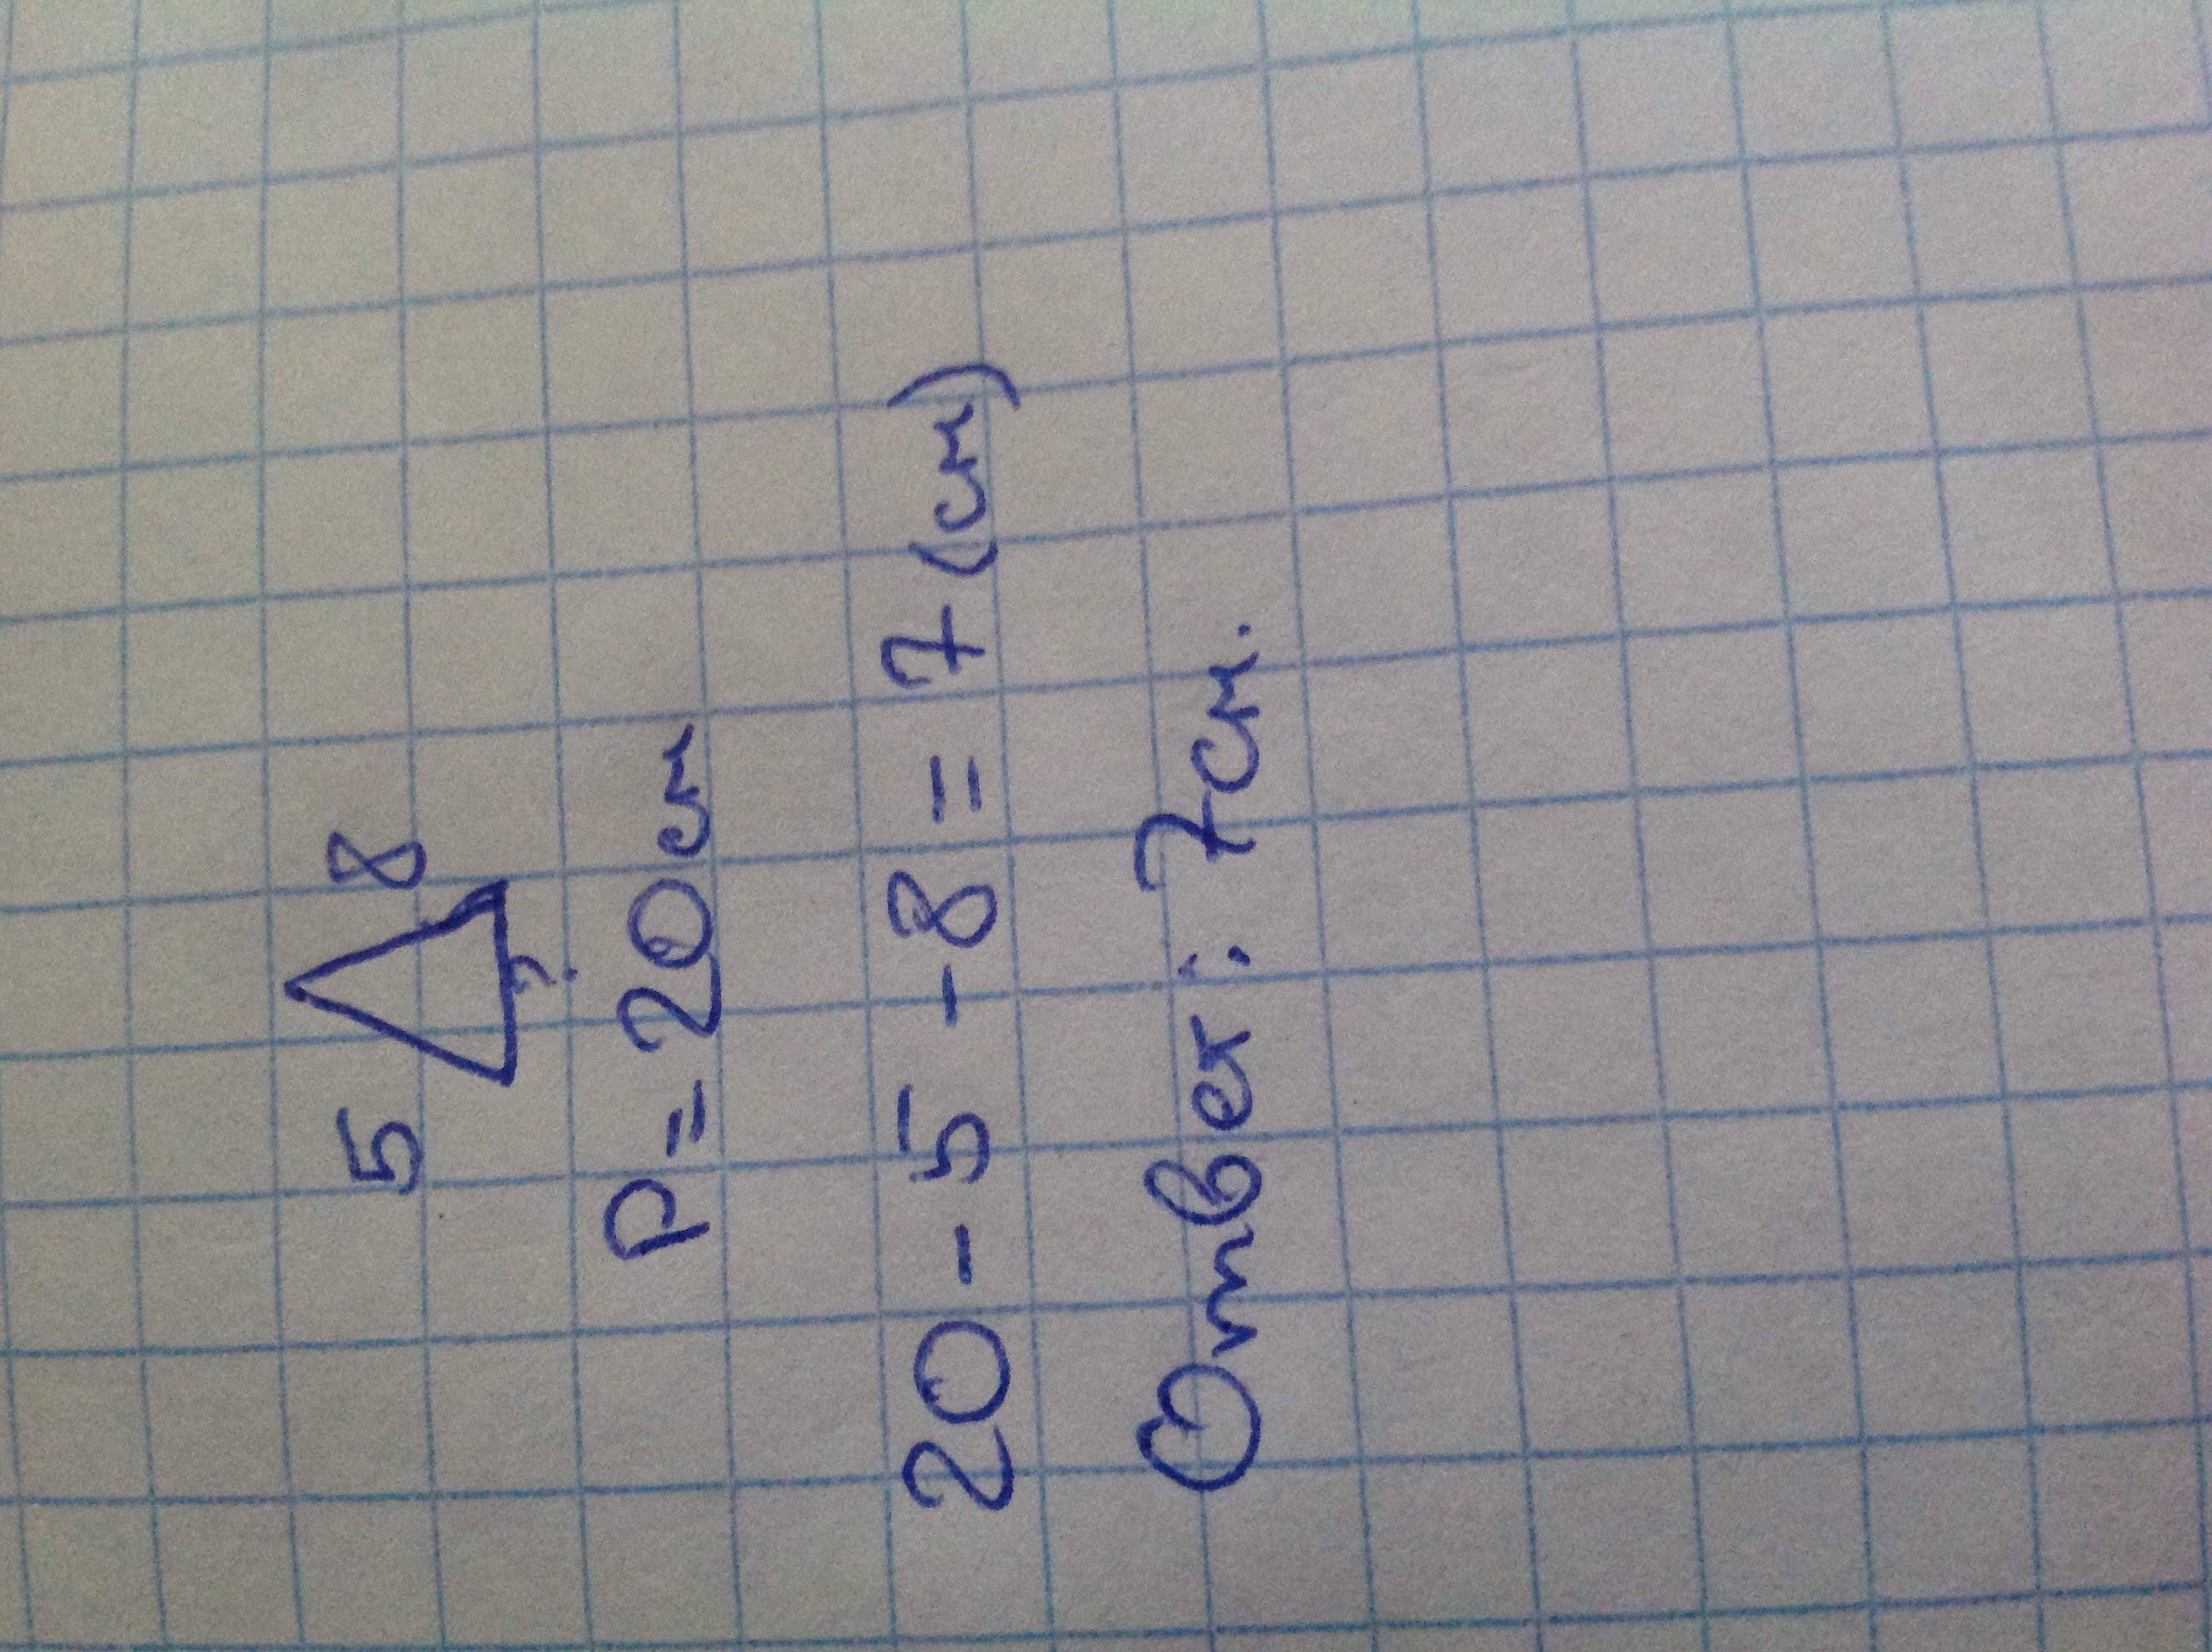 5 8
?
P = 20 см
20 - 5 - 8 = 7 (см)
Ответ: 7 см.